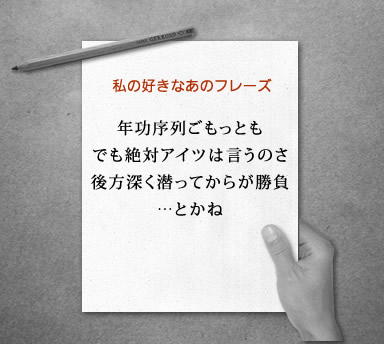 私の好きなあのフレーズ
年功序列ごもっとも
でも絶対アイツは言うのさ
後方深く潜ってからが勝負
…とかね